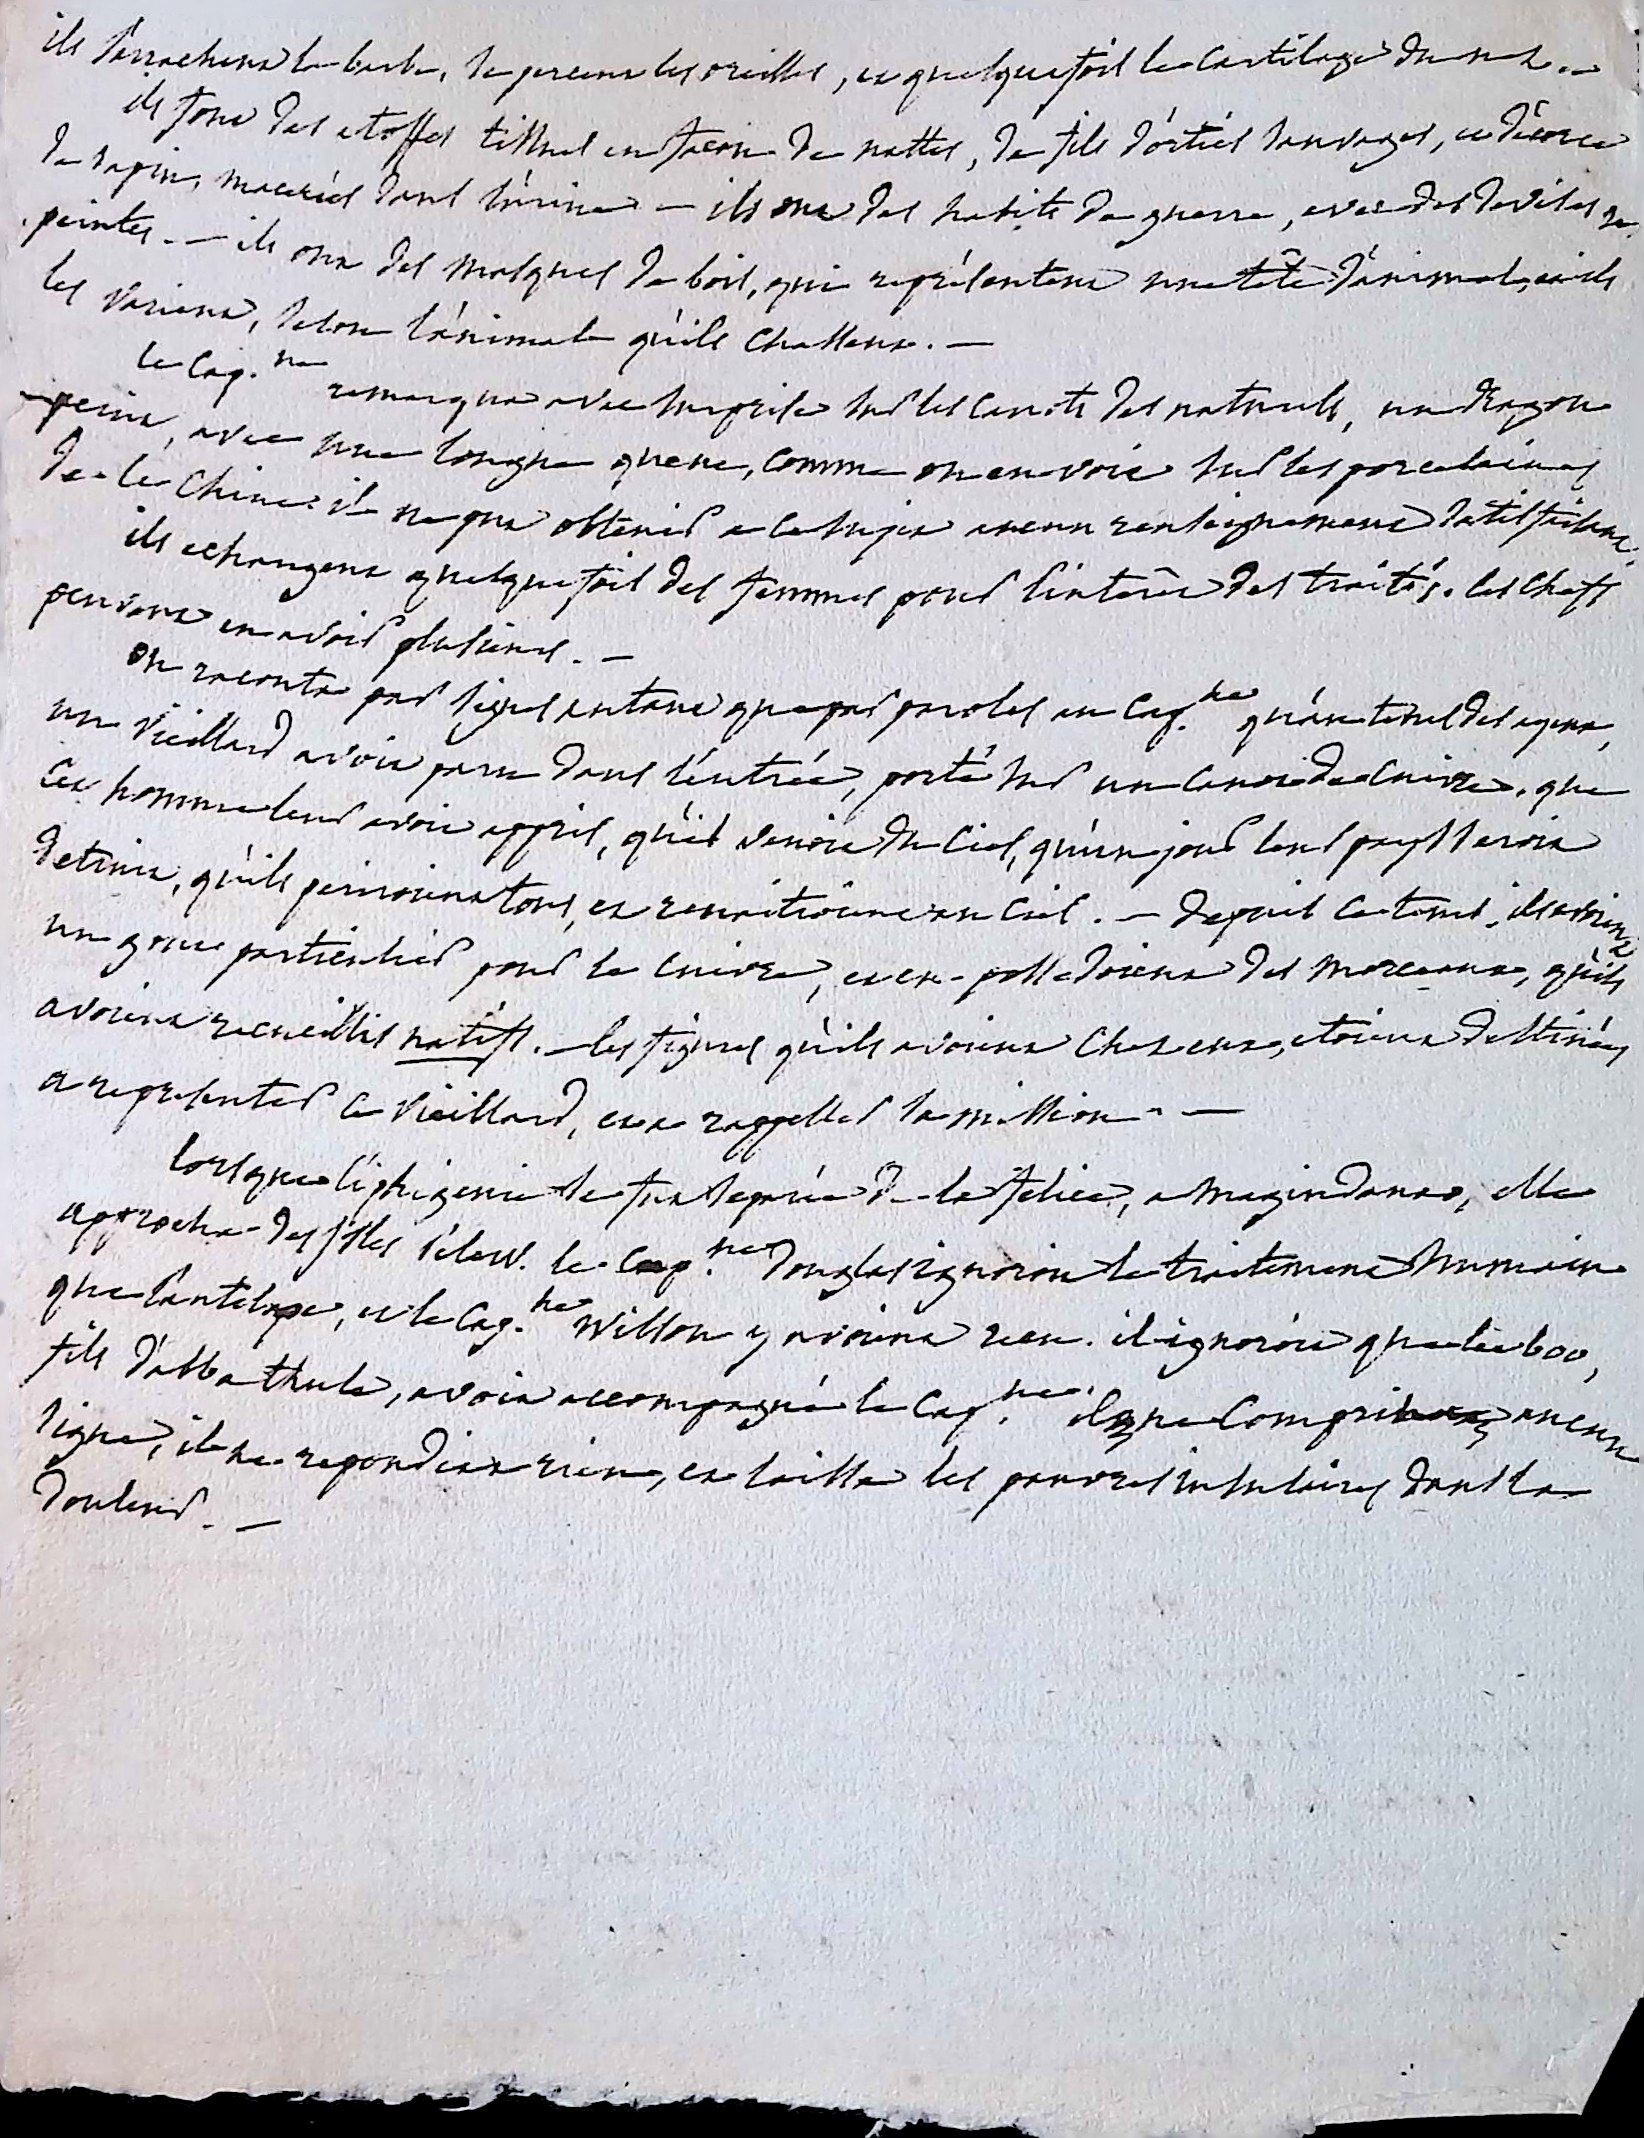 ils s'arrachent la barbe, se percent les oreilles, et quelquefois le cartilage du nez. —
ils font des etoffes tissues en façon de nattes, de fils d'orties sauvages, et d'écorce
de sapin, macérés dans l'urine — ils ont des habits de guerre, avec des devises
peintes. — ils ont des masques de bois, qui représentent une tête d'animal, et ils
les varient, selon l'animal qu'ils chassent. —
le Cap.ne remarqua avec surprise sur les canots des naturels, un dragon
peint, avec une longue queue, comme on en voit sur les porcelaines
de la Chine. il ne put obtenir a ce sujet aucun renseignement satisfaisant.
ils echangent quelquefois des femmes pour l'interêt des traités. les chefs
peuvent en avoir plusieurs. —
on raconta par signes autant que par paroles au Cap.ne qu'au tems des ayeux,
un vieillard avoit paru dans l'entrée, porté sur un canot de cuivre. que
cet homme leur avoit appris, qu'il venoit du Ciel, qu'un jour leur pays seroit
detruit, qu'ils periroient tous, et renaitroient au Ciel. — depuis ce tems, ils avoient
un gout particulier pour le cuivre, et en possedoient des morceaux, qu'ils
avoient recueillis natifs. — les figures qu'ils avoient chez eux, etoient destinées
a representer ce vieillard, et a rappeller sa mission. —
lorsque l'iphigenie se fut separée de la felice, a Magindanao, elle
approcha des isles Pelew. le Cap.ne Douglas ignoroit le traitement humain
que l'antelope, et le Cap.ne Wilson y avoient recu. il ignoroit que lee boo,
fils d'abba thule, avoit accompagné le Cap.ne il ne comprit aucun
signe, il ne repondit a rien, et laissa les pauvres insulaires dans la
douleur. —